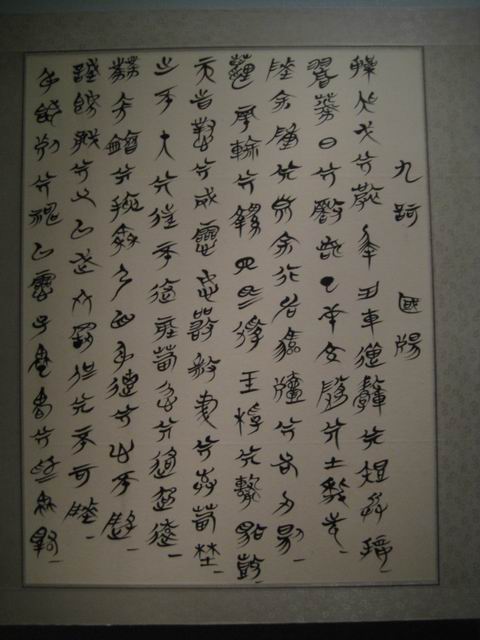 九訶 國殤
操吳戈兮被犀甲車錯轂兮短兵接
旌蔽日兮敵若雲矢交墜兮士爭先
凌余陣兮躐余行左驂殪兮右刃傷
霾兩輪兮縶四馬援玉枹兮擊鳴鼓
天時懟兮威靈怒嚴殺盡兮棄原野
出不入兮往不反平原忽兮路超遠
帶長劍兮挾秦弓首身離兮心不懲
誠既勇兮又以武終剛強兮不可凌
身既死兮神以靈子魂魄兮為鬼雄